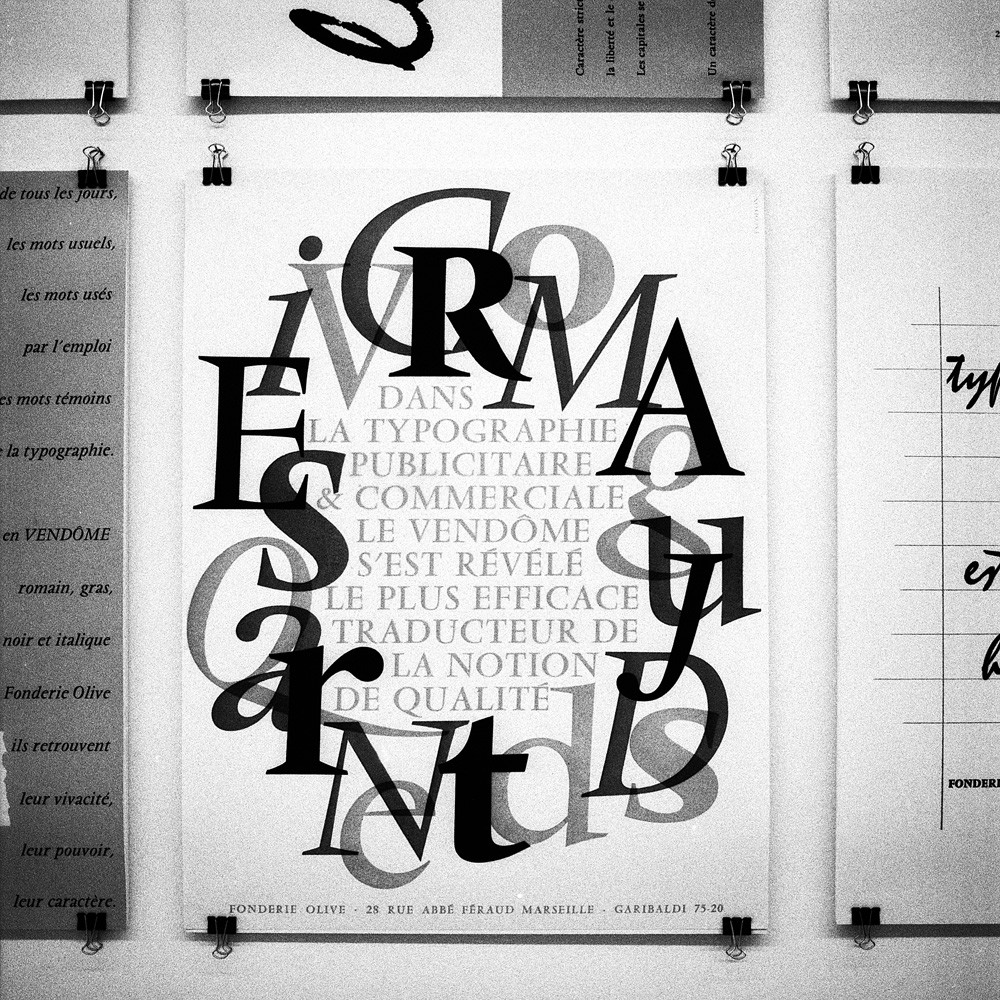 Caractère strict
la liberté et le
Les capitales se
Un caractère d
de tous les jours,
les mots usuels,
les mots usés
par l'emploi
es mots témoins
la typographie.
en VENDÔME
romain, gras,
noir et italique
Fonderie Olive
ils retrouvent
leur vivacité,
leur pouvoir,
leur caractère.
i V C R o M A
E S g u
Q a r J D
N e t d s
DANS
LA TYPOGRAPHIE
PUBLICITAIRE
& COMMERCIALE
LE VENDÔME
S'EST RÉVÉLÉ
LE PLUS EFFICACE
TRADUCTEUR DE
LA NOTION
DE QUALITÉ
FONDERIE OLIVE · 28 RUE ABBÉ FÉRAUD MARSEILLE · GARIBALDI 75-20
typ
es
h
FONDERI